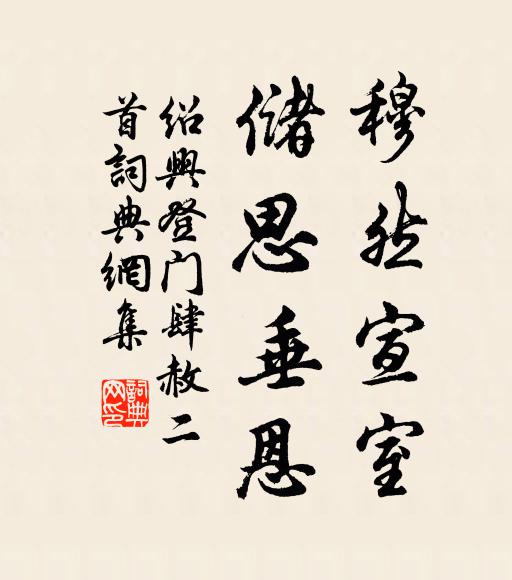 穆然宣室
儲思垂恩
紹興登门肆赦二
首詞典網集
詞典网印